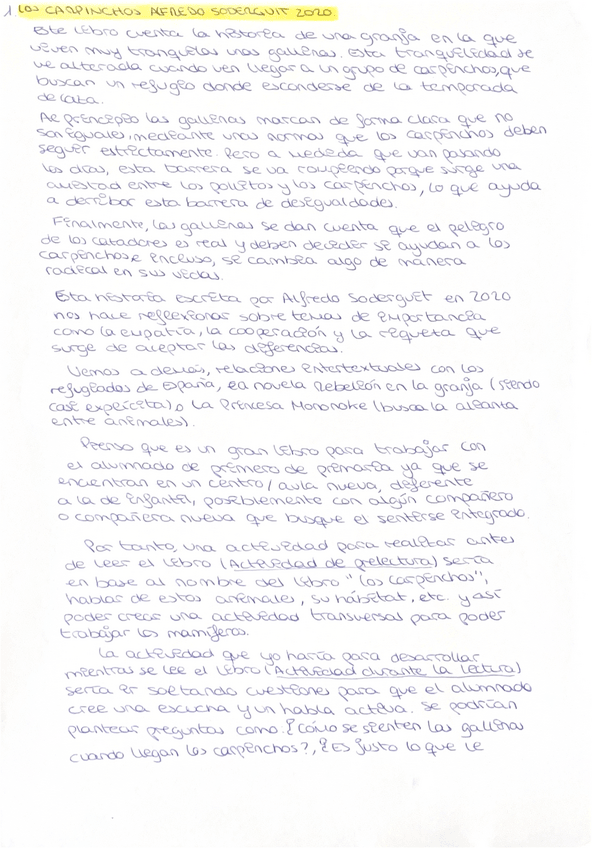 1. LOS CARPINCHOS ALFREDO SODERGUIT 2020.
Este libro cuenta la historia de una granja en la que
viven muy tranquilas unas gallinas. Esta tranquilidad se
ve alterada cuando ven llegar a un grupo de carpinchos, que
buscan un refugio donde esconderse de la temporada
de caza.
Al principio las gallinas marcan de forma clara que no
son iguales, mediante unas normas que los carpinchos deben
seguir estrictamente. Pero a medida que van pasando
los días, esta barrera se va rompiendo porque surge una
amistad entre los pollitos y los carpinchos, lo que ayuda
a derribar esta barrera de desigualdades.
Finalmente, las gallinas se dan cuenta que el peligro
de los cazadores es real y deben decidir si ayudan a los
carpinchos e incluso, si cambia algo de manera
radical en sus vidas.
Esta historia escrita por Alfredo Soderguit en 2020
nos hace reflexionar sobre temas de importancia
como la empatía, la cooperación y la riqueza que
surge de aceptar las diferencias.
Vemos a demás, relaciones intertextuales con los
refugiados de España, la novela Rebelión en la granja (siendo
casi explícita) o La Princesa Mononoke (busca la alianza
entre animales).
Pienso que es un gran libro para trabajar con
el alumnado de primero de primaria ya que se
encuentran en un centro/aula nueva, diferente
a la de infantil, posiblemente con algún compañero
o compañera nueva que busque el sentirse integrado.
Por tanto, una actividad para realizar antes
de leer el libro (Actividad de prelectura) sería
en base al nombre del libro "los carpinchos",
hablar de estos animales, su hábitat, etc. y así
poder crear una actividad transversal para poder
trabajar los mamíferos.
La actividad que yo haría para desarrollar
mientras se lee el libro (Actividad durante la lectura)
sería ir soltando cuestiones para que el alumnado
cree una escucha y un habla activa. Se podrían
plantear preguntas como: ¿cómo se sienten las gallinas
cuando llegan los carpinchos?, ¿Es justo lo que le